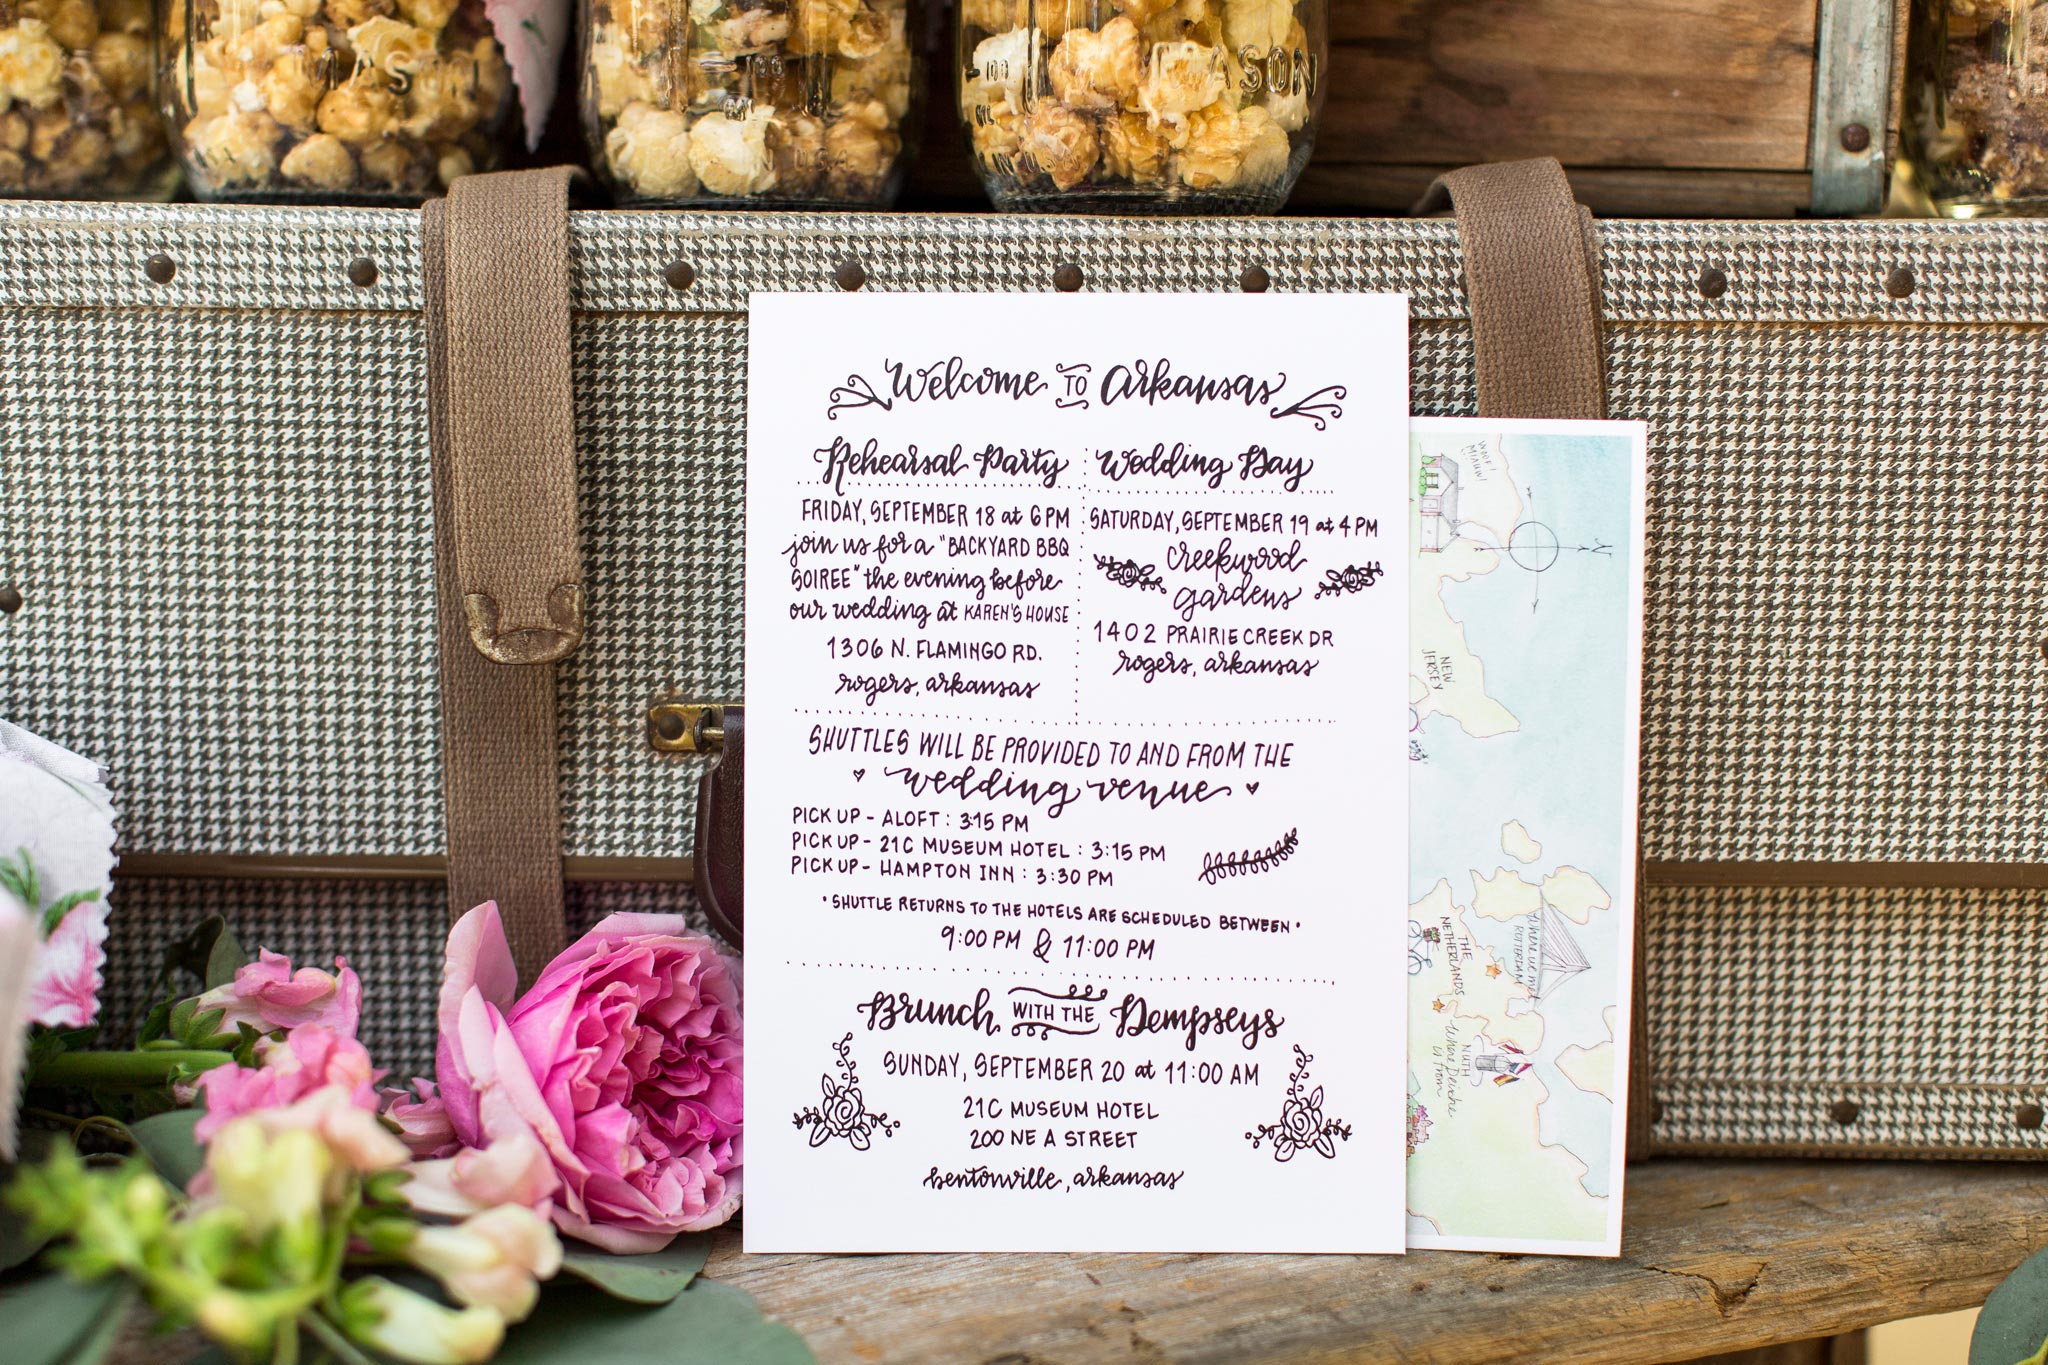 MASON
U.S.A.
MASON
Welcome TO Arkansas
Rehearsal Party
FRIDAY, SEPTEMBER 18 at 6 PM
join us for a "BACKYARD BBQ
SOIREE" the evening before
our wedding at KAREN'S HOUSE
1306 N. FLAMINGO RD.
rogers, arkansas
Wedding Day
SATURDAY, SEPTEMBER 19 at 4 PM
creekwood
gardens
1402 PRAIRIE CREEK DR
rogers, arkansas
SHUTTLES WILL BE PROVIDED TO AND FROM THE
wedding venue
PICK UP - ALOFT : 3:15 PM
PICK UP - 21C MUSEUM HOTEL : 3:15 PM
PICK UP - HAMPTON INN : 3:30 PM
• SHUTTLE RETURNS TO THE HOTELS ARE SCHEDULED BETWEEN •
9:00 PM & 11:00 PM
Brunch WITH THE Dempseys
SUNDAY, SEPTEMBER 20 at 11:00 AM
21C MUSEUM HOTEL
200 NE A STREET
bentonville, arkansas
WOOF!
MIAUW!
N
NEW
JERSEY
THE
NETHERLANDS
Where we met
ROTTERDAM
NUTH
Where Deirdre
is from